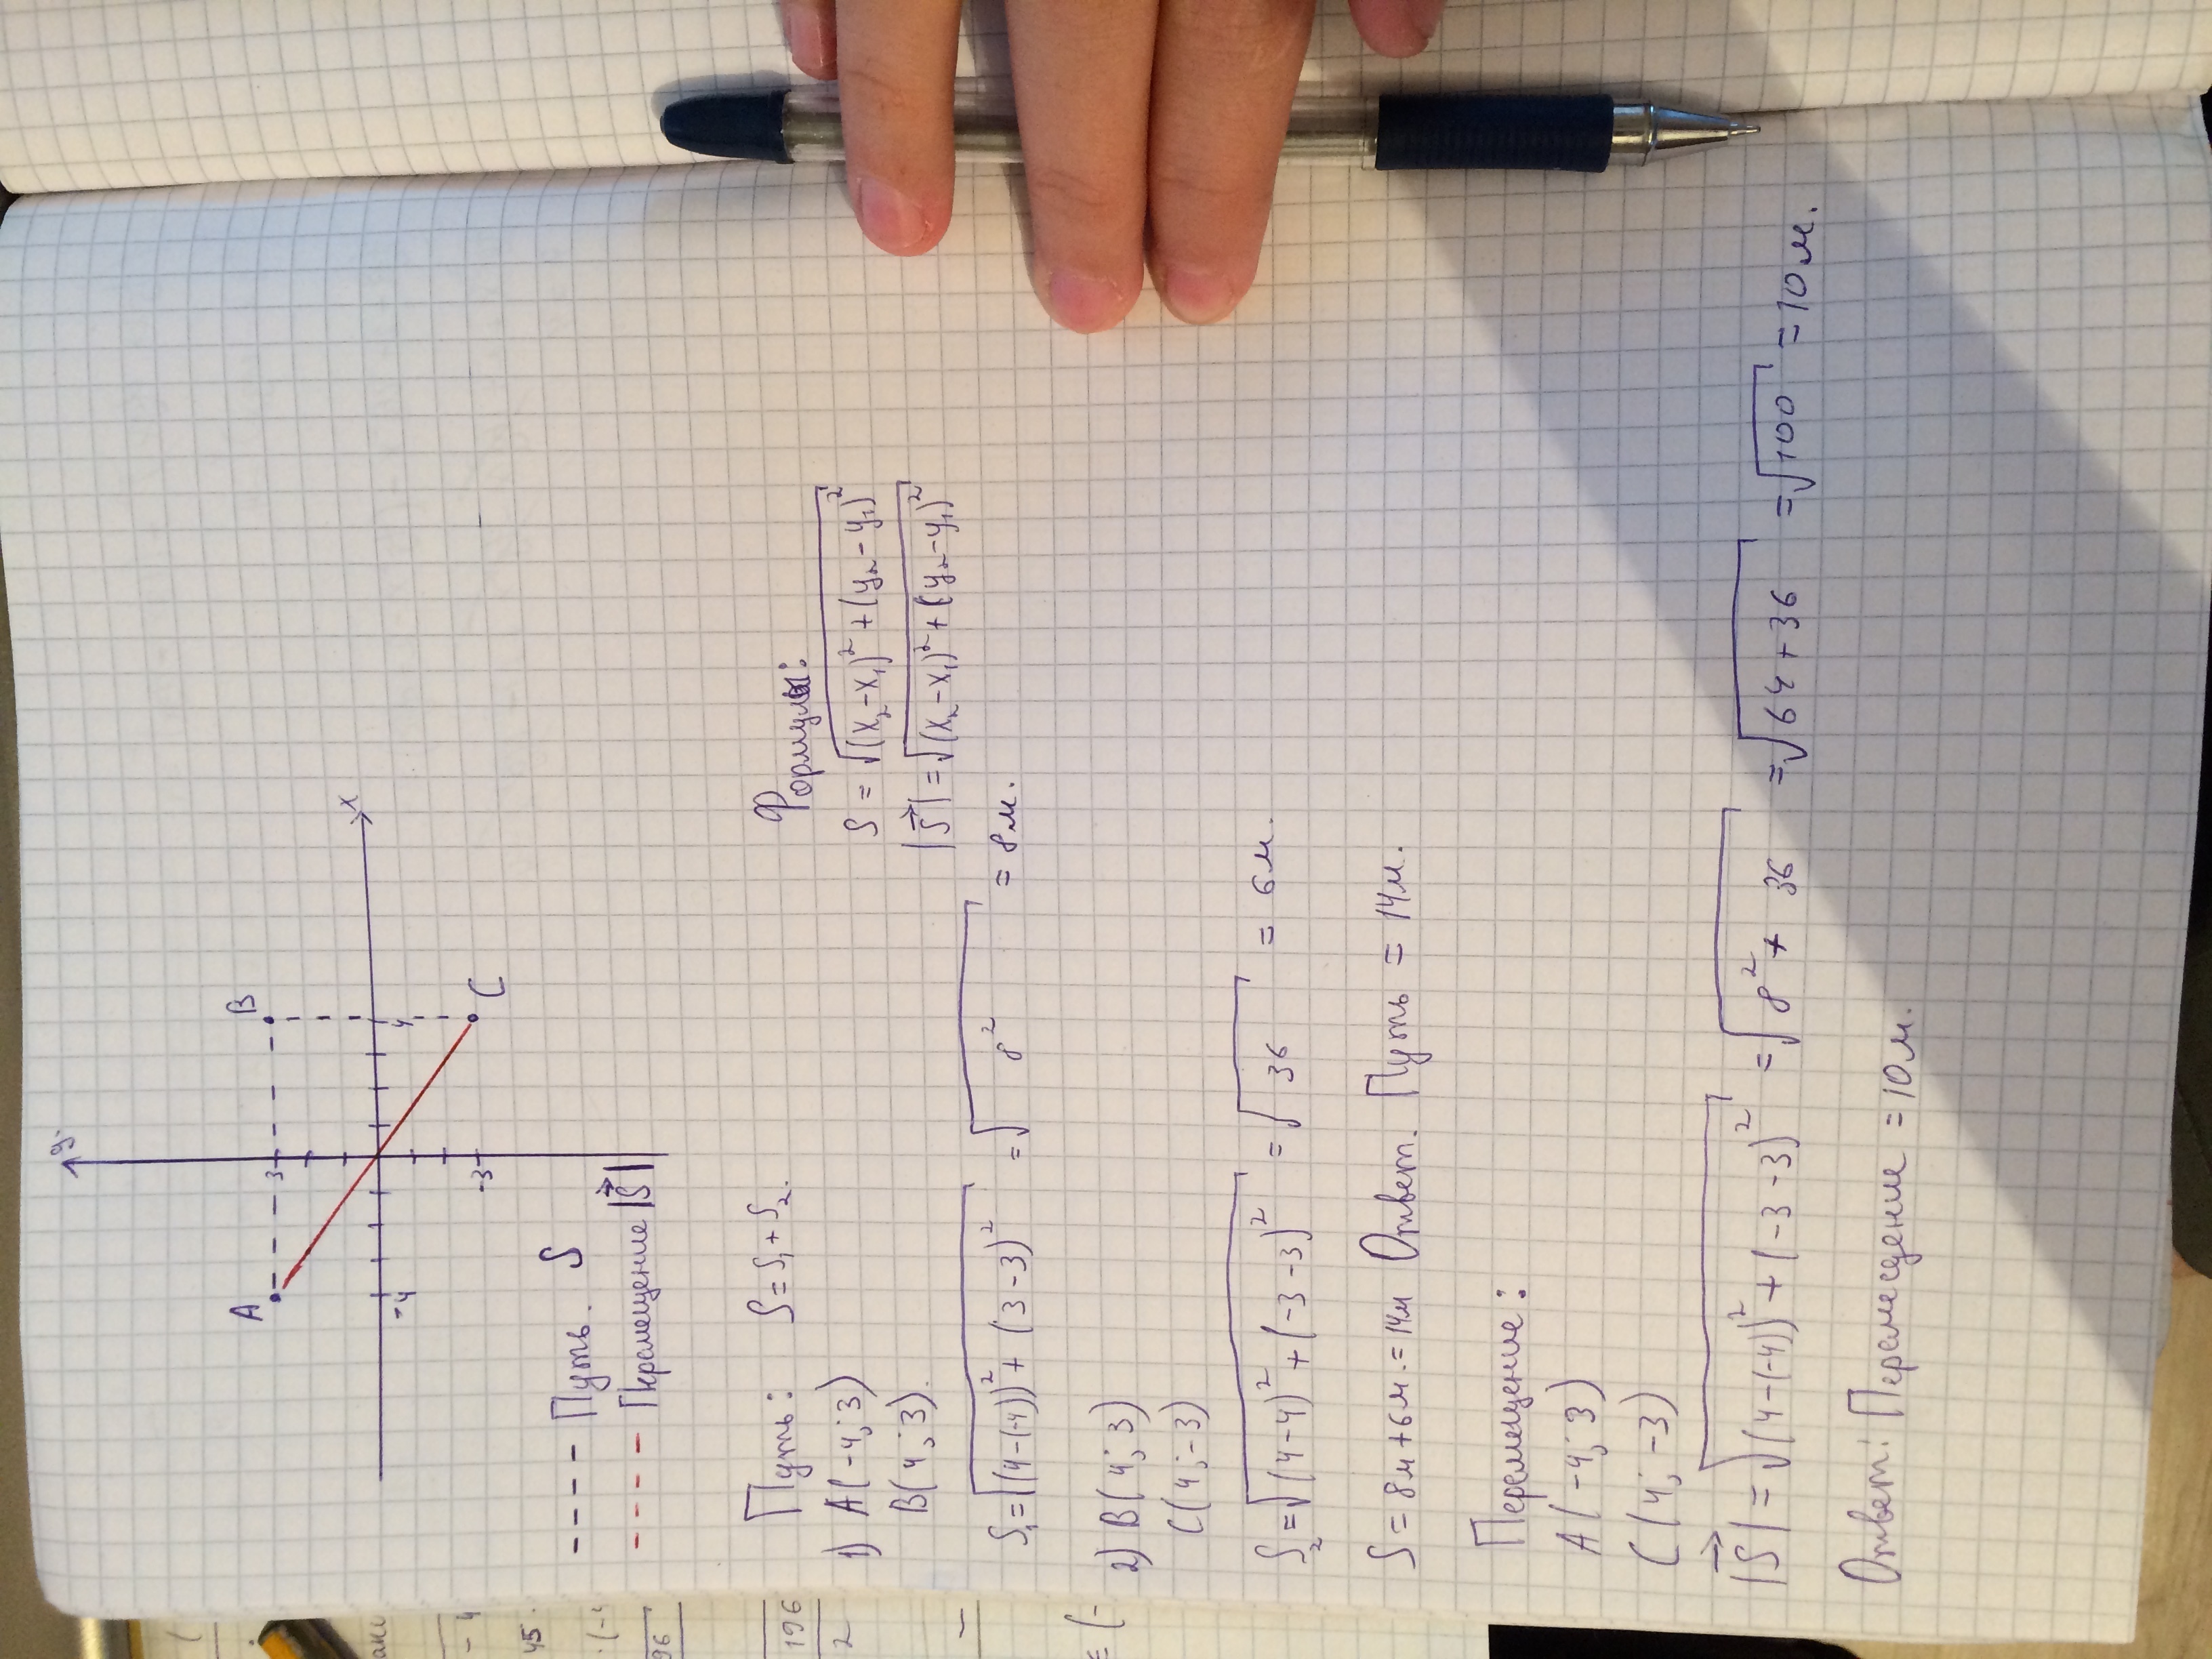 y
A
B
3
x
-4
4
-3
C
---- Путь. S
---- Перемещение |S⃗|
Путь: S = S₁ + S₂.
Формулы:
1) A(-4; 3)
S = √((x₂-x₁)² + (y₂-y₁)²)
B(4; 3).
|S⃗| = √((x₂-x₁)² + (y₂-y₁)²)
S₁ = √((4-(-4))² + (3-3)²) = √(8²) = 8м.
2) B(4; 3)
C(4; -3)
S₂ = √((4-4)² + (-3-3)²) = √36 = 6м.
S = 8м + 6м. = 14м Ответ. Путь = 14м.
Перемещение:
A(-4; 3)
C(4; -3)
|S⃗| = √((4-(-4))² + (-3-3)²) = √(8² + 36) = √(64+36) = √100 = 10м.
Ответ: Перемещение = 10м.
45
96
196
2